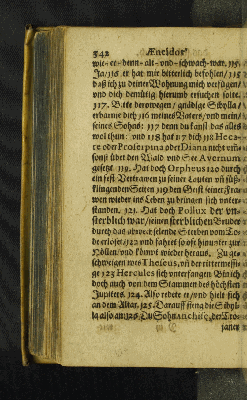 542 Æneidos
wie- er- denn- alt- und- schwach- war. 115.
Ja/116 er hat mir bitterlich befohlen/115
daß ich zu deiner Wohnung mich verfügen/
und dich demütig hierumb ersuchen solte.
117. Bitte derowegen/ gnädige Sibylla/
erbarme dich 116 meines Vaters/und mein/
seines Sohns: 117 denn du kanst das alles
wol thun: und 118 hat 117 dich 118 Heca-
te oder Proserpina oder Diana nicht umb
sonst über den Wald und See Avernum
gesetzt. 119. Hat doch Orpheus 120 durch
ein fest Vertrawen zu seiner Lauten uñ süß-
klingenden Seiten 119 den Geist seiner Fra-
wen wieder ins Leben zu bringen sich unter-
standen. 121. Hat doch Pollux der un-
sterblich war/ seinen sterblichen Bruder
durch das abwechselende Sterben vom To-
de erlöset/122 und fähret so oft hinunter zur
Höllen/und kömt wieder herauf. Zu ge-
schweigen wes Theseus, uñ der rittermessi-
ge 123 Hercules sich unterfangen. Bin ich
doch auch von dem Stammen des höchsten
Jupiters. 124. Also redete er/und hielt sich
an dem Altar. 125. Darauff fieng die Sibyl-
la also an: 126. Du Sohn Anchisæ, der Tro-
janer